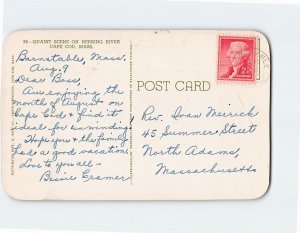 36—QUAINT SCENE ON HERRING RIVER
CAPE COD, MASS.
Barnstable, Mass.
Aug. 9
Dear Boss,
Are enjoying the
month of August on
Cape Cod & find it
ideal for unwinding!
Hope you & the family
had a good vacation.
Love to you all—
Bessie Cramer
POST CARD
2¢
Rev. Ivan Merrick
45 Summer Street
North Adams,
Massachusetts